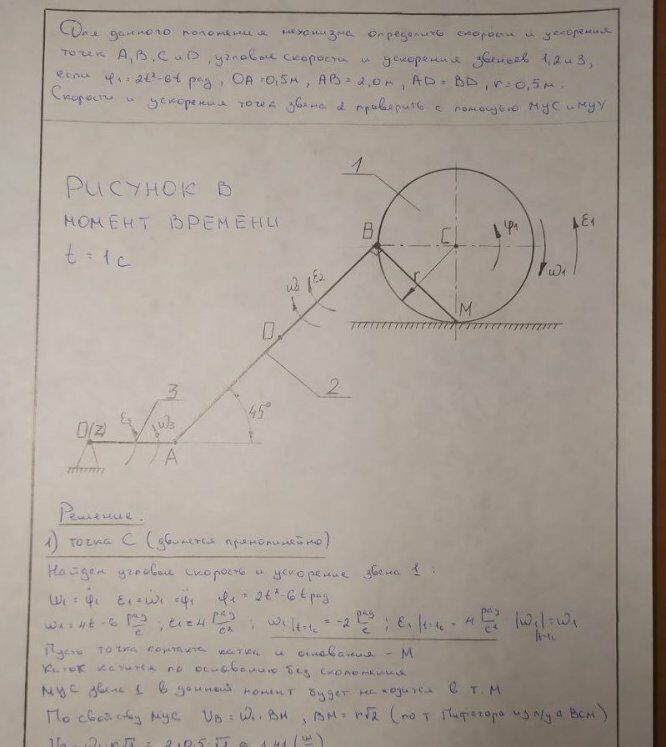 Для данного положения механизма определить скорости и ускорения
точек A, B, C и D, угловые скорости и ускорения звеньев 1, 2 и 3,
если φ₁ = 2t²-6t рад, OA = 0,5м, AB = 2,0м, AD = BD, r = 0,5м.
Скорости и ускорения точек звена 2 проверить с помощью МЦС и МЦУ
РИСУНОК В
МОМЕНТ ВРЕМЕНИ
t = 1с
1
B
C
φ₁
ω₁
ε₁
r
M
ω₂
ε₂
D
2
3
45°
O(z)
ε₃
ω₃
A
Решение.
1) точка C (движется прямолинейно)
Найдем угловые скорость и ускорение звена 1:
ω₁ = φ̇₁ ε₁ = ω̇₁ = φ̈₁ φ₁ = 2t²-6t рад
ω₁ = 4t-6 рад/с; ε₁ = 4 рад/с²; ω₁|t=1с = -2 рад/с; ε₁|t=1с = 4 рад/с² |ω₁|t=1с = ω₁
Пусть точка контакта катка и основания - M
Каток катится по основанию без скольжения
МЦС звена 1 в данный момент будет находится в т. M
По свойству МЦС VB = ω₁·BM; BM = r√2 (по т Пифагора из п/у Δ BCM)
VB = ω₁ r√2 = 2·0,5√2 = 1,41 (м/с)